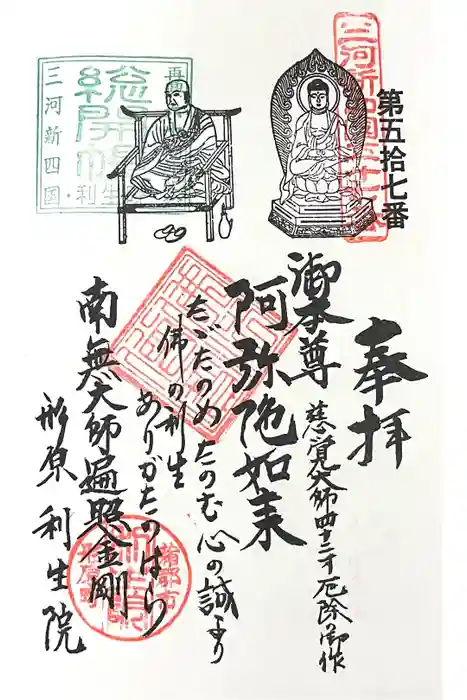 第五拾七番
奉拝
御本尊
慈覚大師四十二才厄除御作
阿弥陀如来
たゞたのめたのむ心の誠より
佛の利生
ありがたのはら
南無大師遍照金剛
形原利生院
総開帳
三河新四国
利生
蒲郡市
形原町